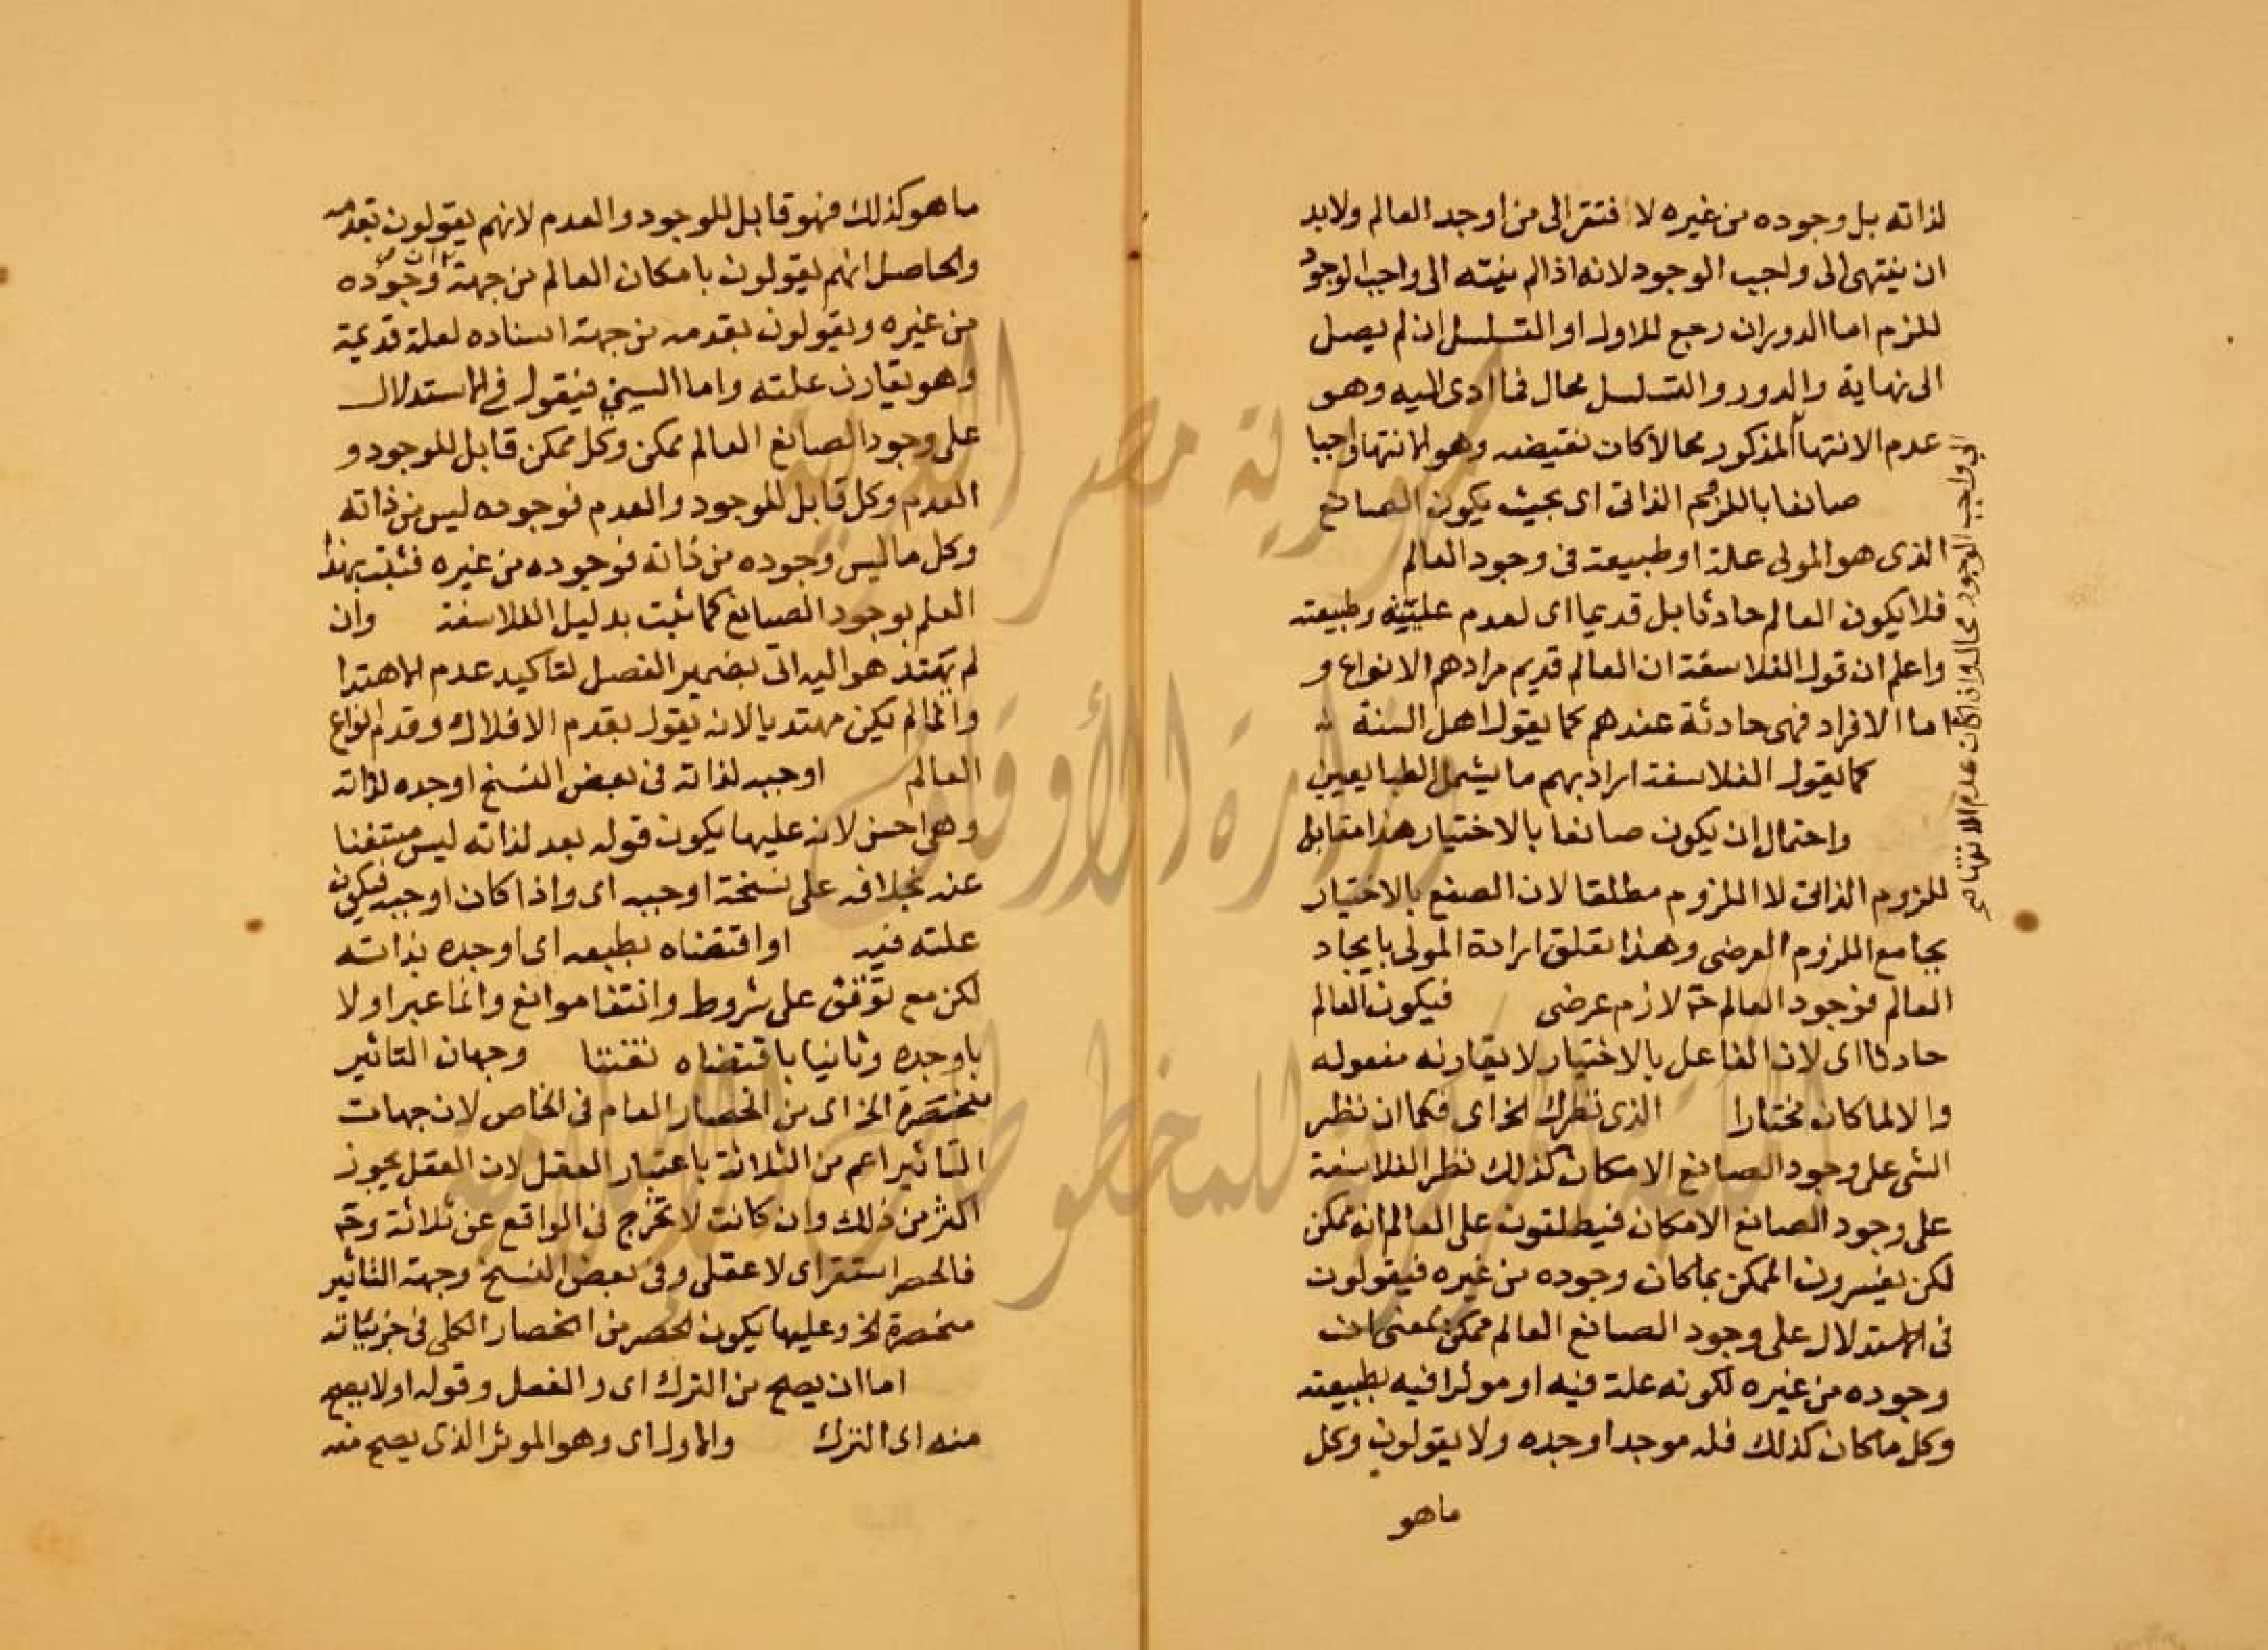 لذاته بل وجوده من غيره لا فتقر الى من اوجد العالم ولابد
ان ينتهى الى واجب الوجود لانه اذا لم ينته الى واجب الوجود
للزم اما الدور ان رجع للاول او التسلسل ان لم يصل
الى نهاية والدور والتسلسل محال فما ادى اليه وهو
عدم الانتهاء المذكور محالا كان نقيضه وهو الانتها واجبا
صانعا باللزوم الذاتى اى بحيث يكون الصانع
الذى هو المولى علة او طبيعة فى وجود العالم
فلا يكون العالم حادثا بل قديما اى لعدم عليته وطبيعته
واعلم ان قول الفلاسفة ان العالم قديم مرادهم الانواع و
اما الافراد فهى حادثة عندهم كما يقول اهل السنة
كما يقول الفلاسفة اراد بهم ما يشمل الطبايعيين
واحتمال ان يكون صانعا بالاختيار هذا مقابل
للزوم الذاتى لا اللزوم مطلقا لان الصنع بالاختيار
يجامع اللزوم العرضى وهذا تعلق ارادة المولى بايجاد
العالم فوجود العالم ح لازم عرضى فيكون العالم
حادثا اى لان الفاعل بالاختيار لا يقارنه مفعوله
والا لما كان مختارا الذى نظرك الخ اى فكما ان نظر
السنى على وجود الصانع الامكان كذلك نظر الفلاسفة
على وجود الصانع الامكان فيطلقون على العالم انه ممكن
لكن يفسرون الممكن بما كان وجوده من غيره فيقولون
فى الاستدلال على وجود الصانع العالم ممكن بمعنى ان
وجوده من غيره لكونه علة فيه او موثرا فيه بطبيعته
وكل ما كان كذلك فله موجد اوجده ولا يقولون وكل
ما هو
الى واجب الوجود محال واذا كان عدم الانتها
ما هو كذلك فهو قابل للوجود والعدم لانهم يقولون بقدمه
والحاصل انهم يقولون بامكان العالم من جهة ان وجوده
من غيره ويقولون بقدمه من جهة اسناده لعلة قديمة
وهو يقارن علته واما السني فيقول فى الاستدلال
على وجود الصانع العالم ممكن وكل ممكن قابل للوجود و
العدم وكل قابل للوجود والعدم فوجوده ليس من ذاته
وكل ما ليس وجوده من ذاته فوجوده من غيره فثبت بهذا
العلم بوجود الصانع كما ثبت بدليل الفلاسفة وان
لم يهتد هو اليه اتى بضمير الفصل لتاكيد عدم الاهتدا
وانما لم يكن مهتديا لانه يقول بقدم الافلاك وقدم انواع
العالم اوجبه لذاته فى بعض النسخ اوجده لذاته
وهى احسن لانه عليها يكون قوله بعد لذاته ليس مستغنا
عنه بخلافه على نسخة اوجبه اى واذا كان اوجبه فيكون
علته فيه او اقتضاه بطبعه اى اوجده بذاته
لكن مع توقف على شروط وانتفا موانع وانما عبر اولا
باوجده وثانيا باقتضاه تفننا وجهات التاثير
منحصرة الخ اى من انحصار العام فى الخاص لان جهات
التاثير اعم من الثلاثة باعتبار العقل لان العقل يجوز
اكثر من ذلك وان كانت لا تخرج فى الواقع عن ثلاثة وح
فالحصر استقراى لا عقلى وفى بعض النسخ وجهة التاثير
منحصرة الخ وعليها يكون الحصر من انحصار الكلى فى جزيئاته
اما ان يصح من الترك اى والفعل وقوله اولا يصح
منه اى الترك والاول اى وهو الموثر الذى يصح منه